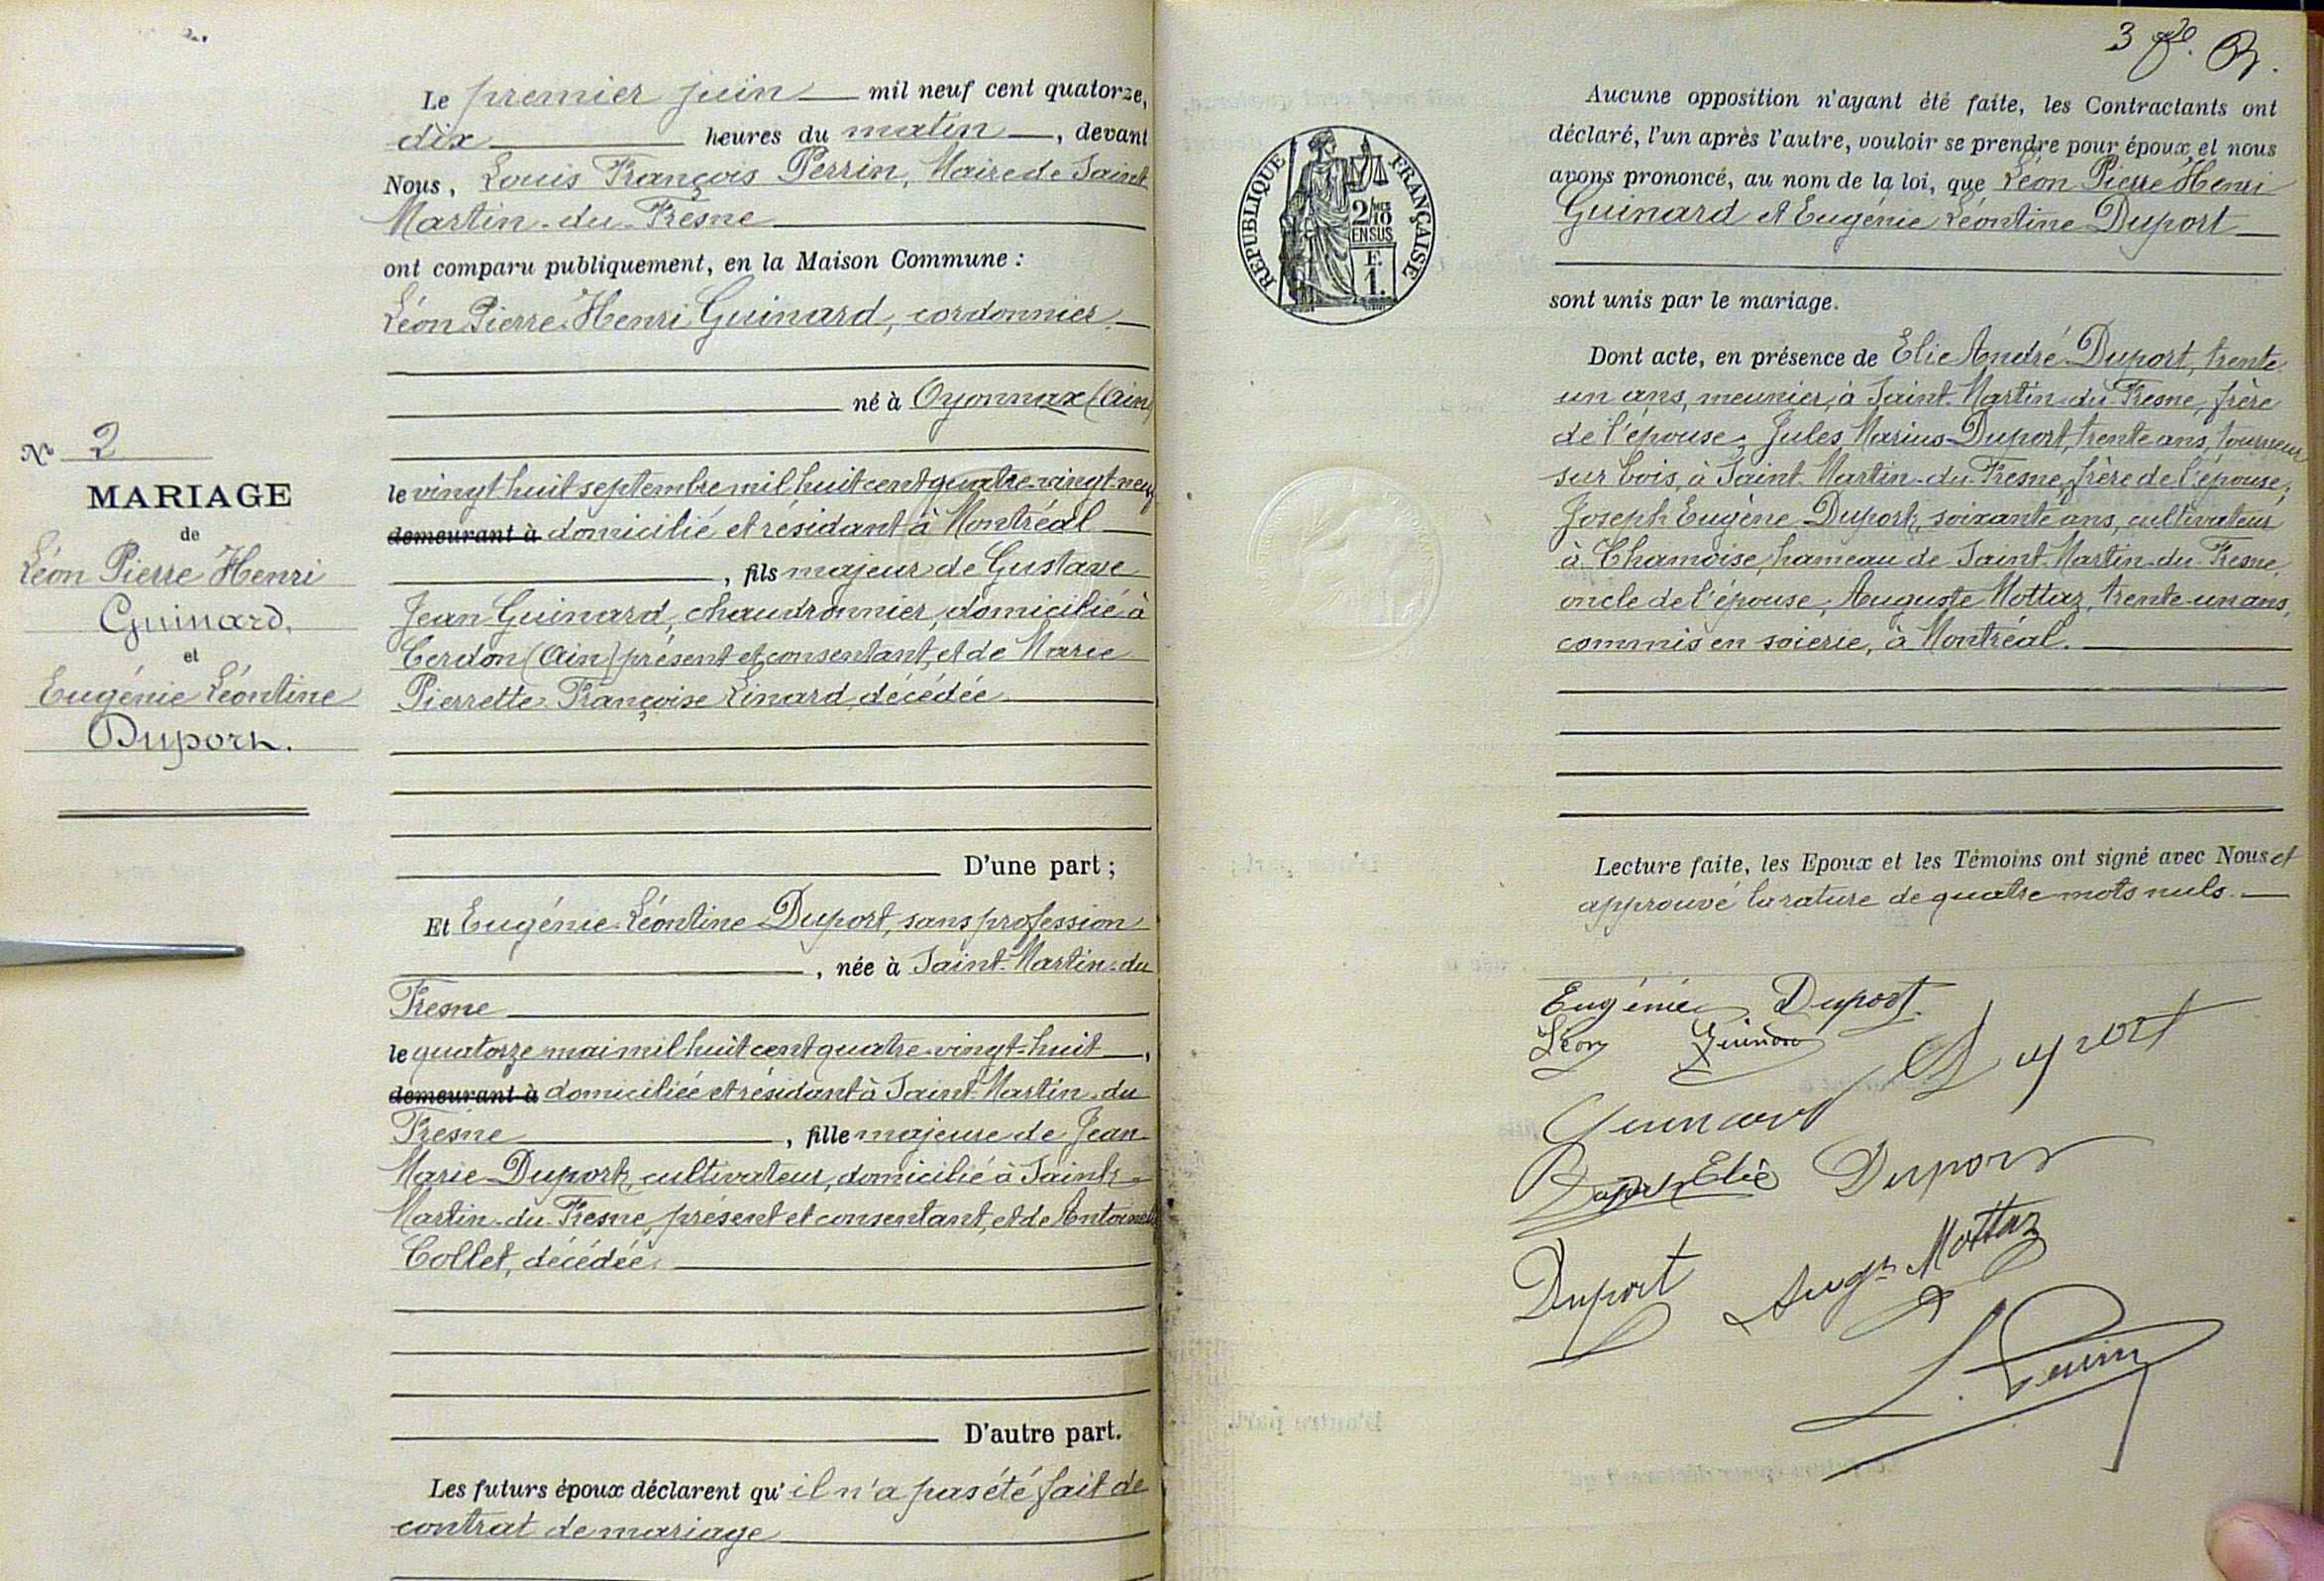 Le premier juin mil neuf cent quatorze,
dix heures du matin, devant
Nous, Louis François Perrin, Maire de Saint-
Martin-du-Fresne
ont comparu publiquement, en la Maison Commune :
Léon Pierre Henri Guinard, cordonnier
né à Oyonnax (Ain)
le vingt huit septembre mil huit cent quatre-vingt neuf
demeurant à domicilié et résidant à Montréal
, fils majeur de Gustave
Jean Guinard, chaudronnier, domicilié à
Cerdon (Ain) présent et consentant, et de Marie
Pierrette Françoise Linard, décédée
D'une part ;
Et Eugénie Léontine Duport, sans profession
, née à Saint-Martin-du
Fresne
le quatorze mai mil huit cent quatre-vingt-huit,
demeurant à domiciliée et résidant à Saint-Martin-du
Fresne, fille majeure de Jean
Marie Duport, cultivateur, domicilié à Saint-
Martin-du-Fresne, présent et consentant, et de Antoinette
Collet, décédée.
D'autre part.
Les futurs époux déclarent qu'il n'a pas été fait de
contrat de mariage
No 2
MARIAGE
de
Léon Pierre Henri
Guinard,
et
Eugénie Léontine
Duport.
3
RÉPUBLIQUE FRANÇAISE
2/10
EN SUS
F.
1.
Aucune opposition n'ayant été faite, les Contractants ont
déclaré, l'un après l'autre, vouloir se prendre pour époux, et nous
avons prononcé, au nom de la loi, que Léon Pierre Henri
Guinard et Eugénie Léontine Duport
sont unis par le mariage.
Dont acte, en présence de Elie André Duport, trente
un ans, meunier, à Saint-Martin-du-Fresne, frère
de l'épouse; Jules Marius Duport, trente ans, tourneur
sur bois, à Saint-Martin-du-Fresne, frère de l'épouse;
Joseph Eugène Duport, soixante ans, cultivateur
à Chamoise, hameau de Saint-Martin-du-Fresne,
oncle de l'épouse; Auguste Mottaz, trente-un ans,
commis en soierie, à Montréal.
Lecture faite, les Epoux et les Témoins ont signé avec Nous et
approuvé la rature de quatre mots nuls.
Eugénie Duport
Léon Guinard
Duport
Guinard
Duport Elie Duport
Duport Augte Mottaz
L. Perrin